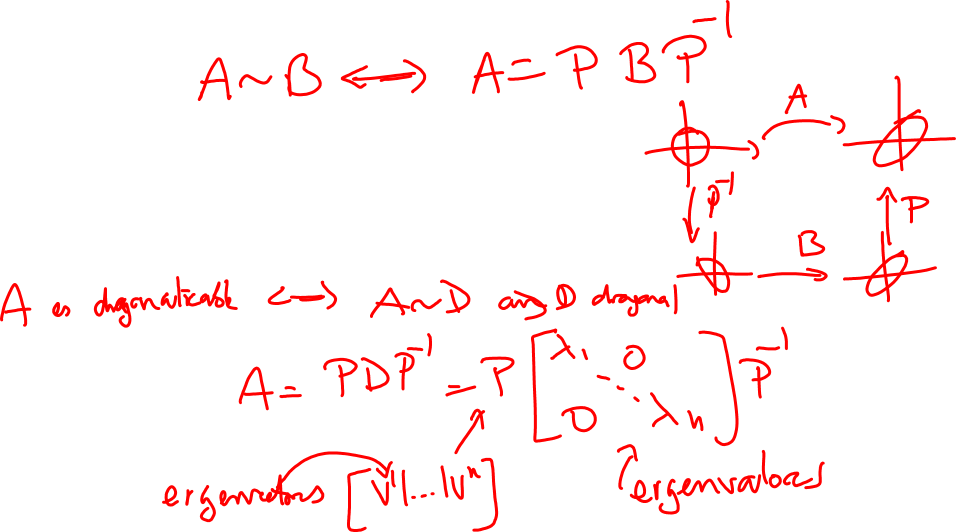 A ~ B ⟷ A = P B P⁻¹
A
P⁻¹
P
B
A is diagonalizable ⟷ A ~ D and D diagonal
A = P D P⁻¹ = P [ λ₁ 0 ⋱ 0 λn ] P⁻¹
eigenvectors [ v¹ | ... | vⁿ ] eigenvalues